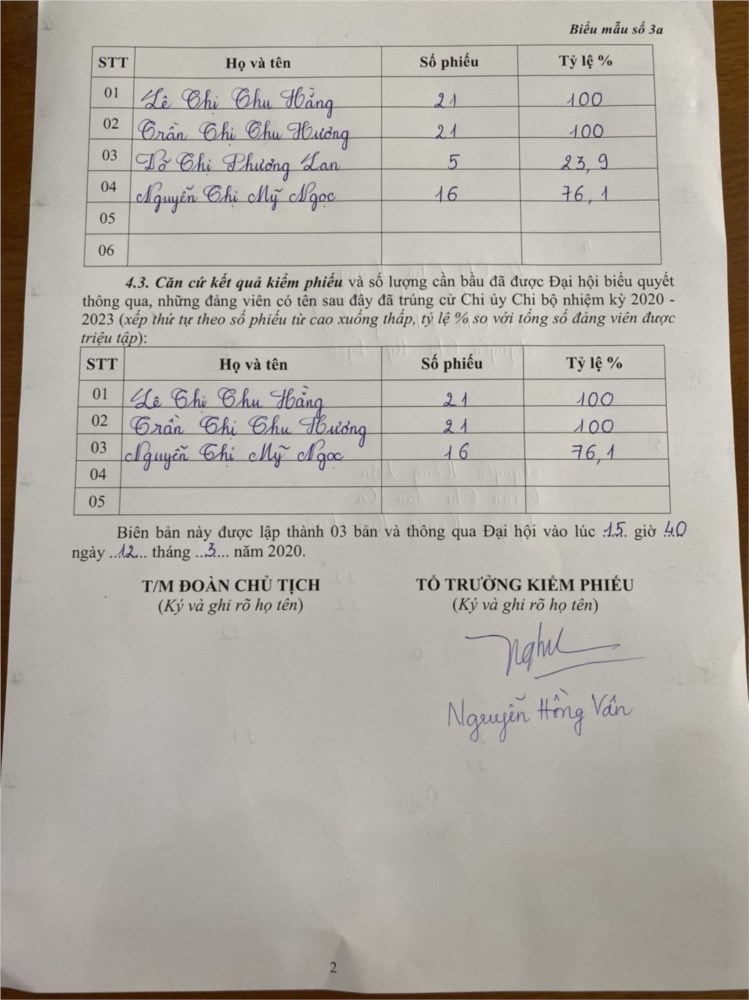 Biểu mẫu số 3a
STT Họ và tên Số phiếu Tỷ lệ %
01 Lê Thị Thu Hằng 21 100
02 Trần Thị Thu Hương 21 100
03 Đỗ Thị Phương Lan 5 23,9
04 Nguyễn Thị Mỹ Ngọc 16 76,1
05
06
4.3. Căn cứ kết quả kiểm phiếu và số lượng cần bầu đã được Đại hội biểu quyết
thông qua, những đảng viên có tên sau đây đã trúng cử Chi ủy Chi bộ nhiệm kỳ 2020 -
2023 (xếp thứ tự theo số phiếu từ cao xuống thấp, tỷ lệ % so với tổng số đảng viên được
triệu tập):
STT Họ và tên Số phiếu Tỷ lệ %
01 Lê Thị Thu Hằng 21 100
02 Trần Thị Thu Hương 21 100
03 Nguyễn Thị Mỹ Ngọc 16 76,1
04
05
Biên bản này được lập thành 03 bản và thông qua Đại hội vào lúc .15. giờ 40
ngày ..12... tháng ..3... năm 2020.
T/M ĐOÀN CHỦ TỊCH TỔ TRƯỞNG KIỂM PHIẾU
(Ký và ghi rõ họ tên) (Ký và ghi rõ họ tên)
Nguyễn Hồng Vân
2